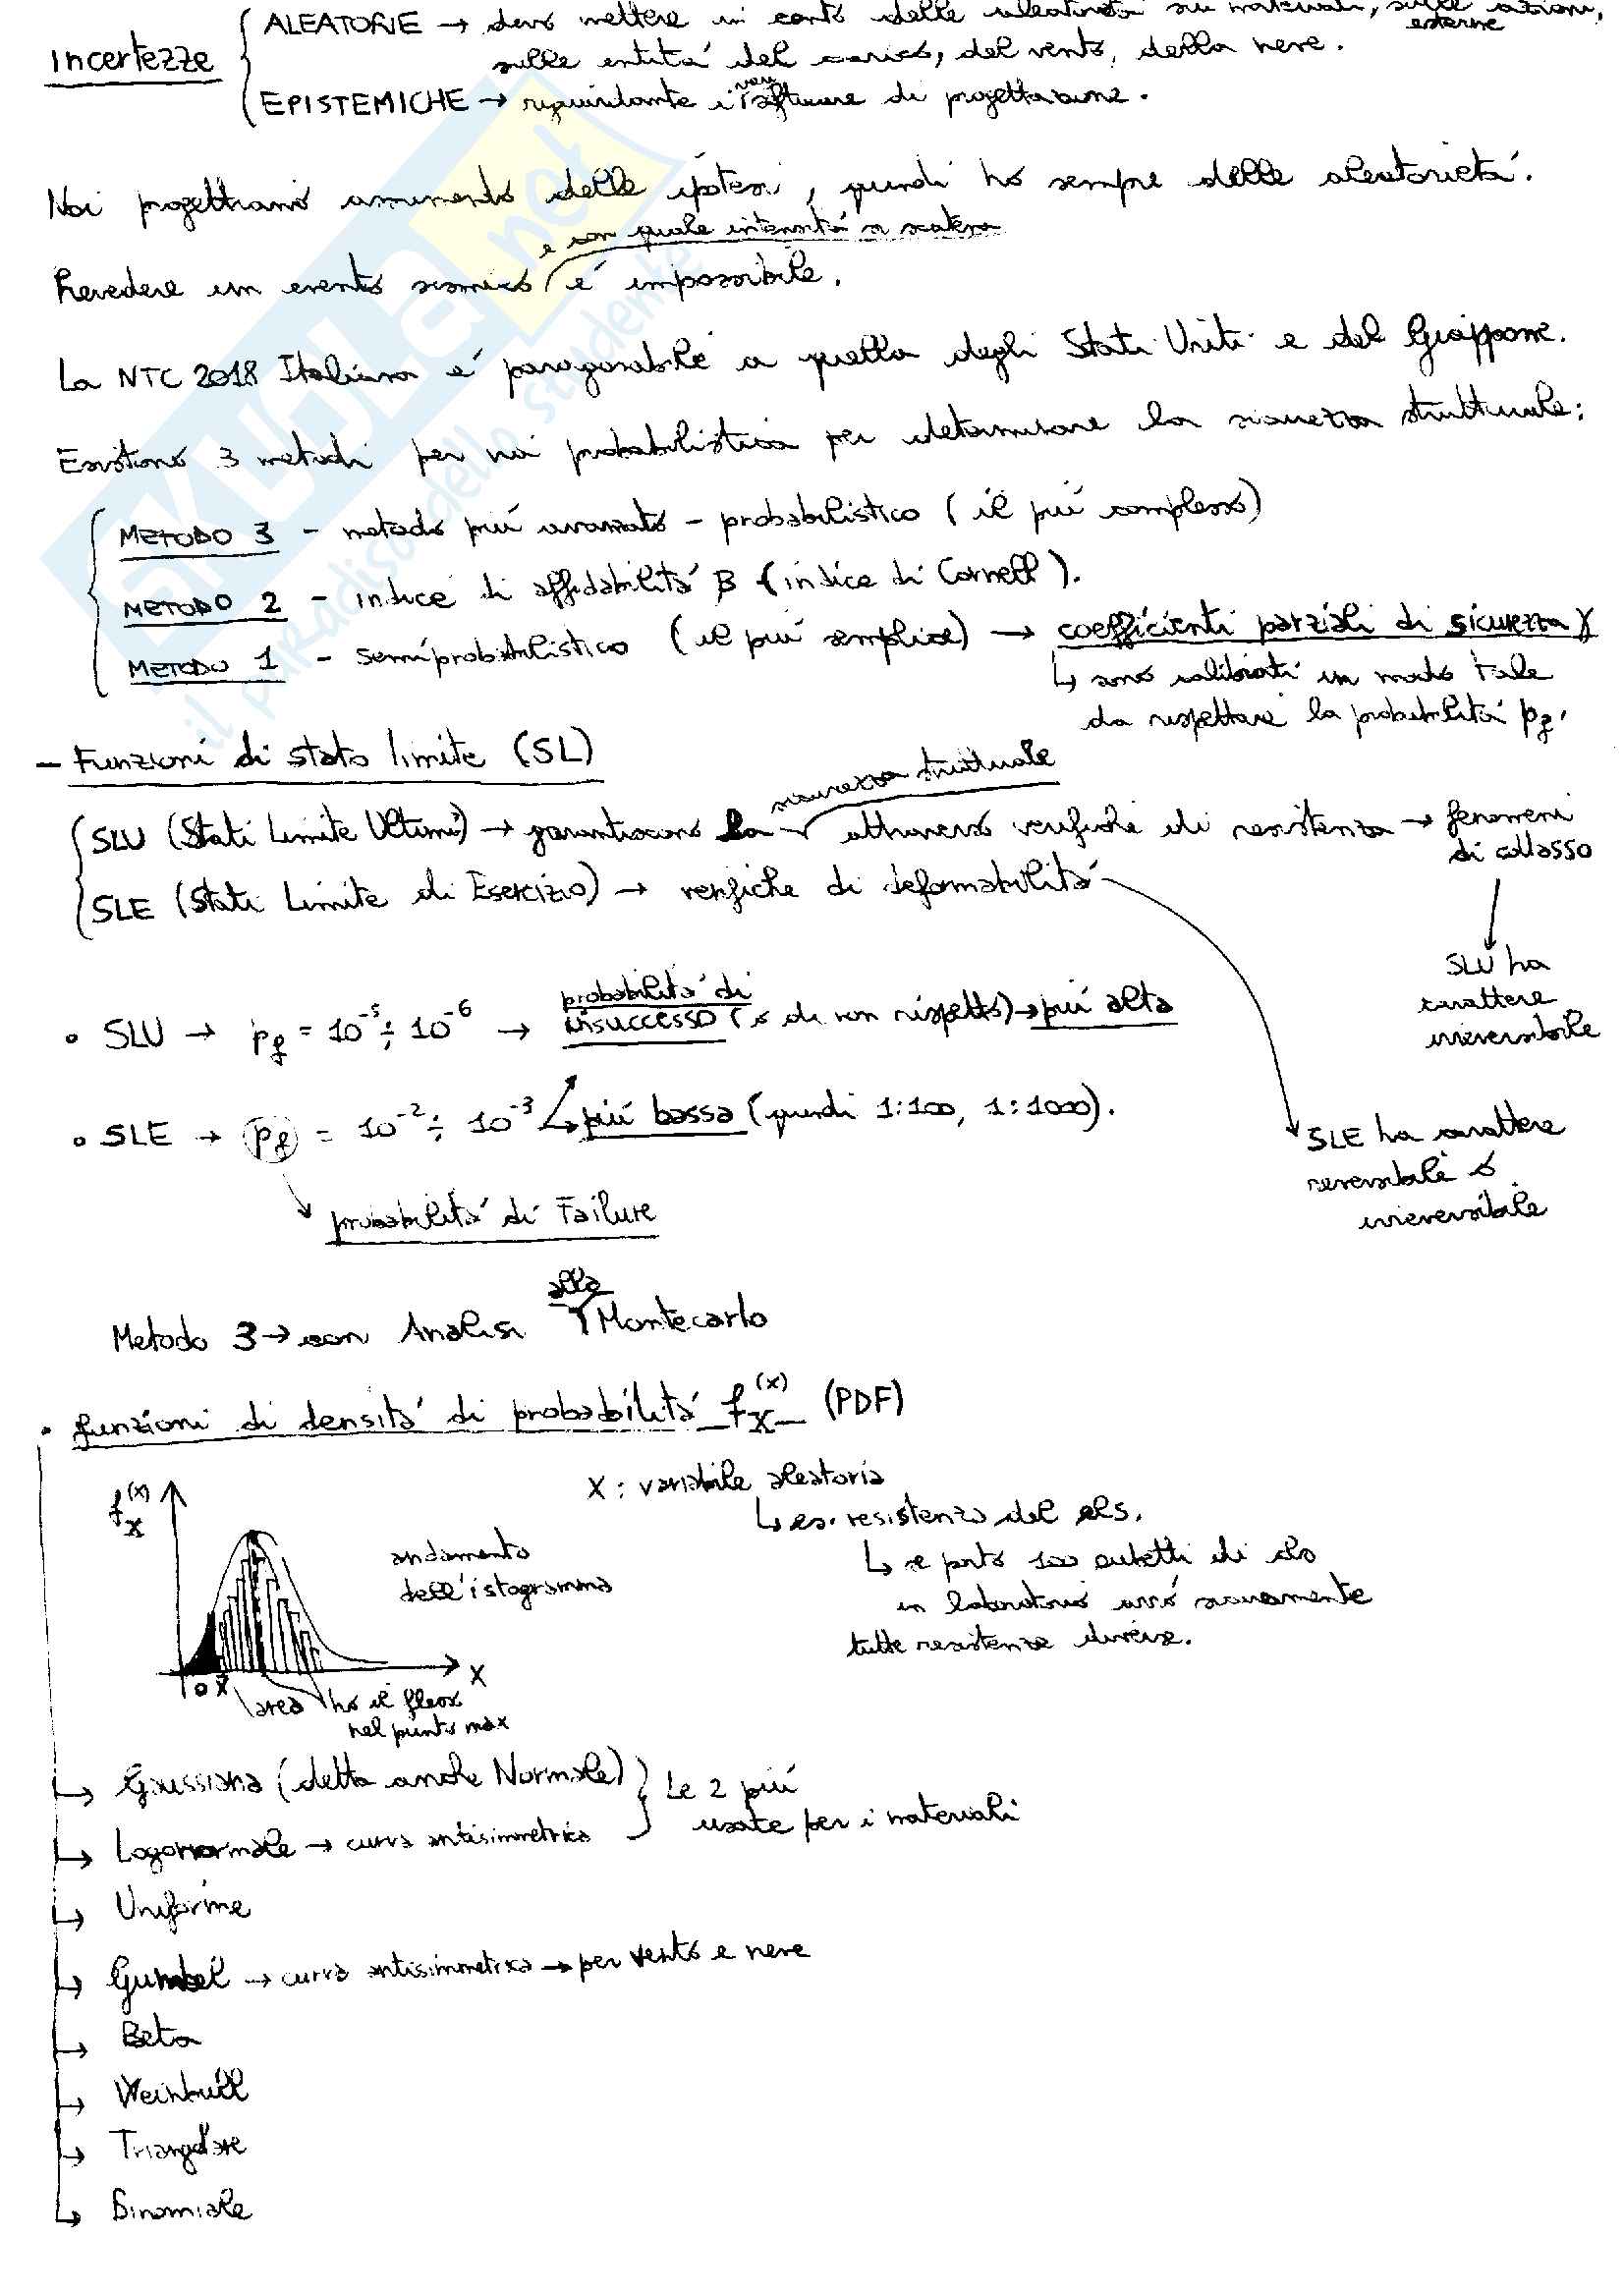 Incertezze
ALEATORIE → devo mettere in conto delle aleatorietà sui materiali, sulle azioni esterne,
sulle entità del carico, del vento, della neve.
EPISTEMICHE → riguardante i vari software di progettazione.
Noi progettiamo assumendo delle ipotesi, quindi ho sempre delle aleatorietà.
Prevedere un evento sismico e con quale intensità si scatena é impossibile.
La NTC 2018 Italiana é paragonabile a quella degli Stati Uniti e del Giappone.
Esistono 3 metodi per noi probabilistici per determinare la sicurezza strutturale:
METODO 3 - metodo più avanzato - probabilistico (il più complesso)
METODO 2 - indice di affidabilità β (indice di Cornell).
METODO 1 - semiprobabilistico (il più semplice) → coefficienti parziali di sicurezza γ
↳ sono calibrati in modo tale
da rispettare la probabilità pf.
- Funzioni di stato limite (SL)
SLU (Stati Limite Ultimi) → garantiscono la sicurezza strutturale attraverso verifiche di resistenza → fenomeni
di collasso
SLE (Stati Limite di Esercizio) → verifiche di deformabilità
SLU ha
carattere
irreversibile
• SLU → pf = 10⁻⁵ ÷ 10⁻⁶ → probabilità di
insuccesso (o di non rispetto) → più alta
• SLE → pf = 10⁻² ÷ 10⁻³ ↳ più bassa (quindi 1:100, 1:1000).
SLE ha carattere
reversibile o
irreversibile
probabilità di Failure
Metodo 3 → con Analisi alla Montecarlo
• funzioni di densità di probabilità fx(x) (PDF)
x : variabile aleatoria
↳ es. resistenza del cls.
↳ se porto 100 cubetti di cls
in laboratorio avrò sicuramente
tutte resistenze diverse.
fx(x)
andamento
dell'istogramma
0 x̄ x
area ho il flesso
nel punto max
↳ Gaussiana (detta anche Normale) } Le 2 più
usate per i materiali
↳ Logonormale → curva antisimmetrica
↳ Uniforme
↳ Gumbel → curva antisimmetrica → per vento e neve
↳ Beta
↳ Weinbull
↳ Triangolare
↳ Binomiale
skuola.net
il paradiso dello studente